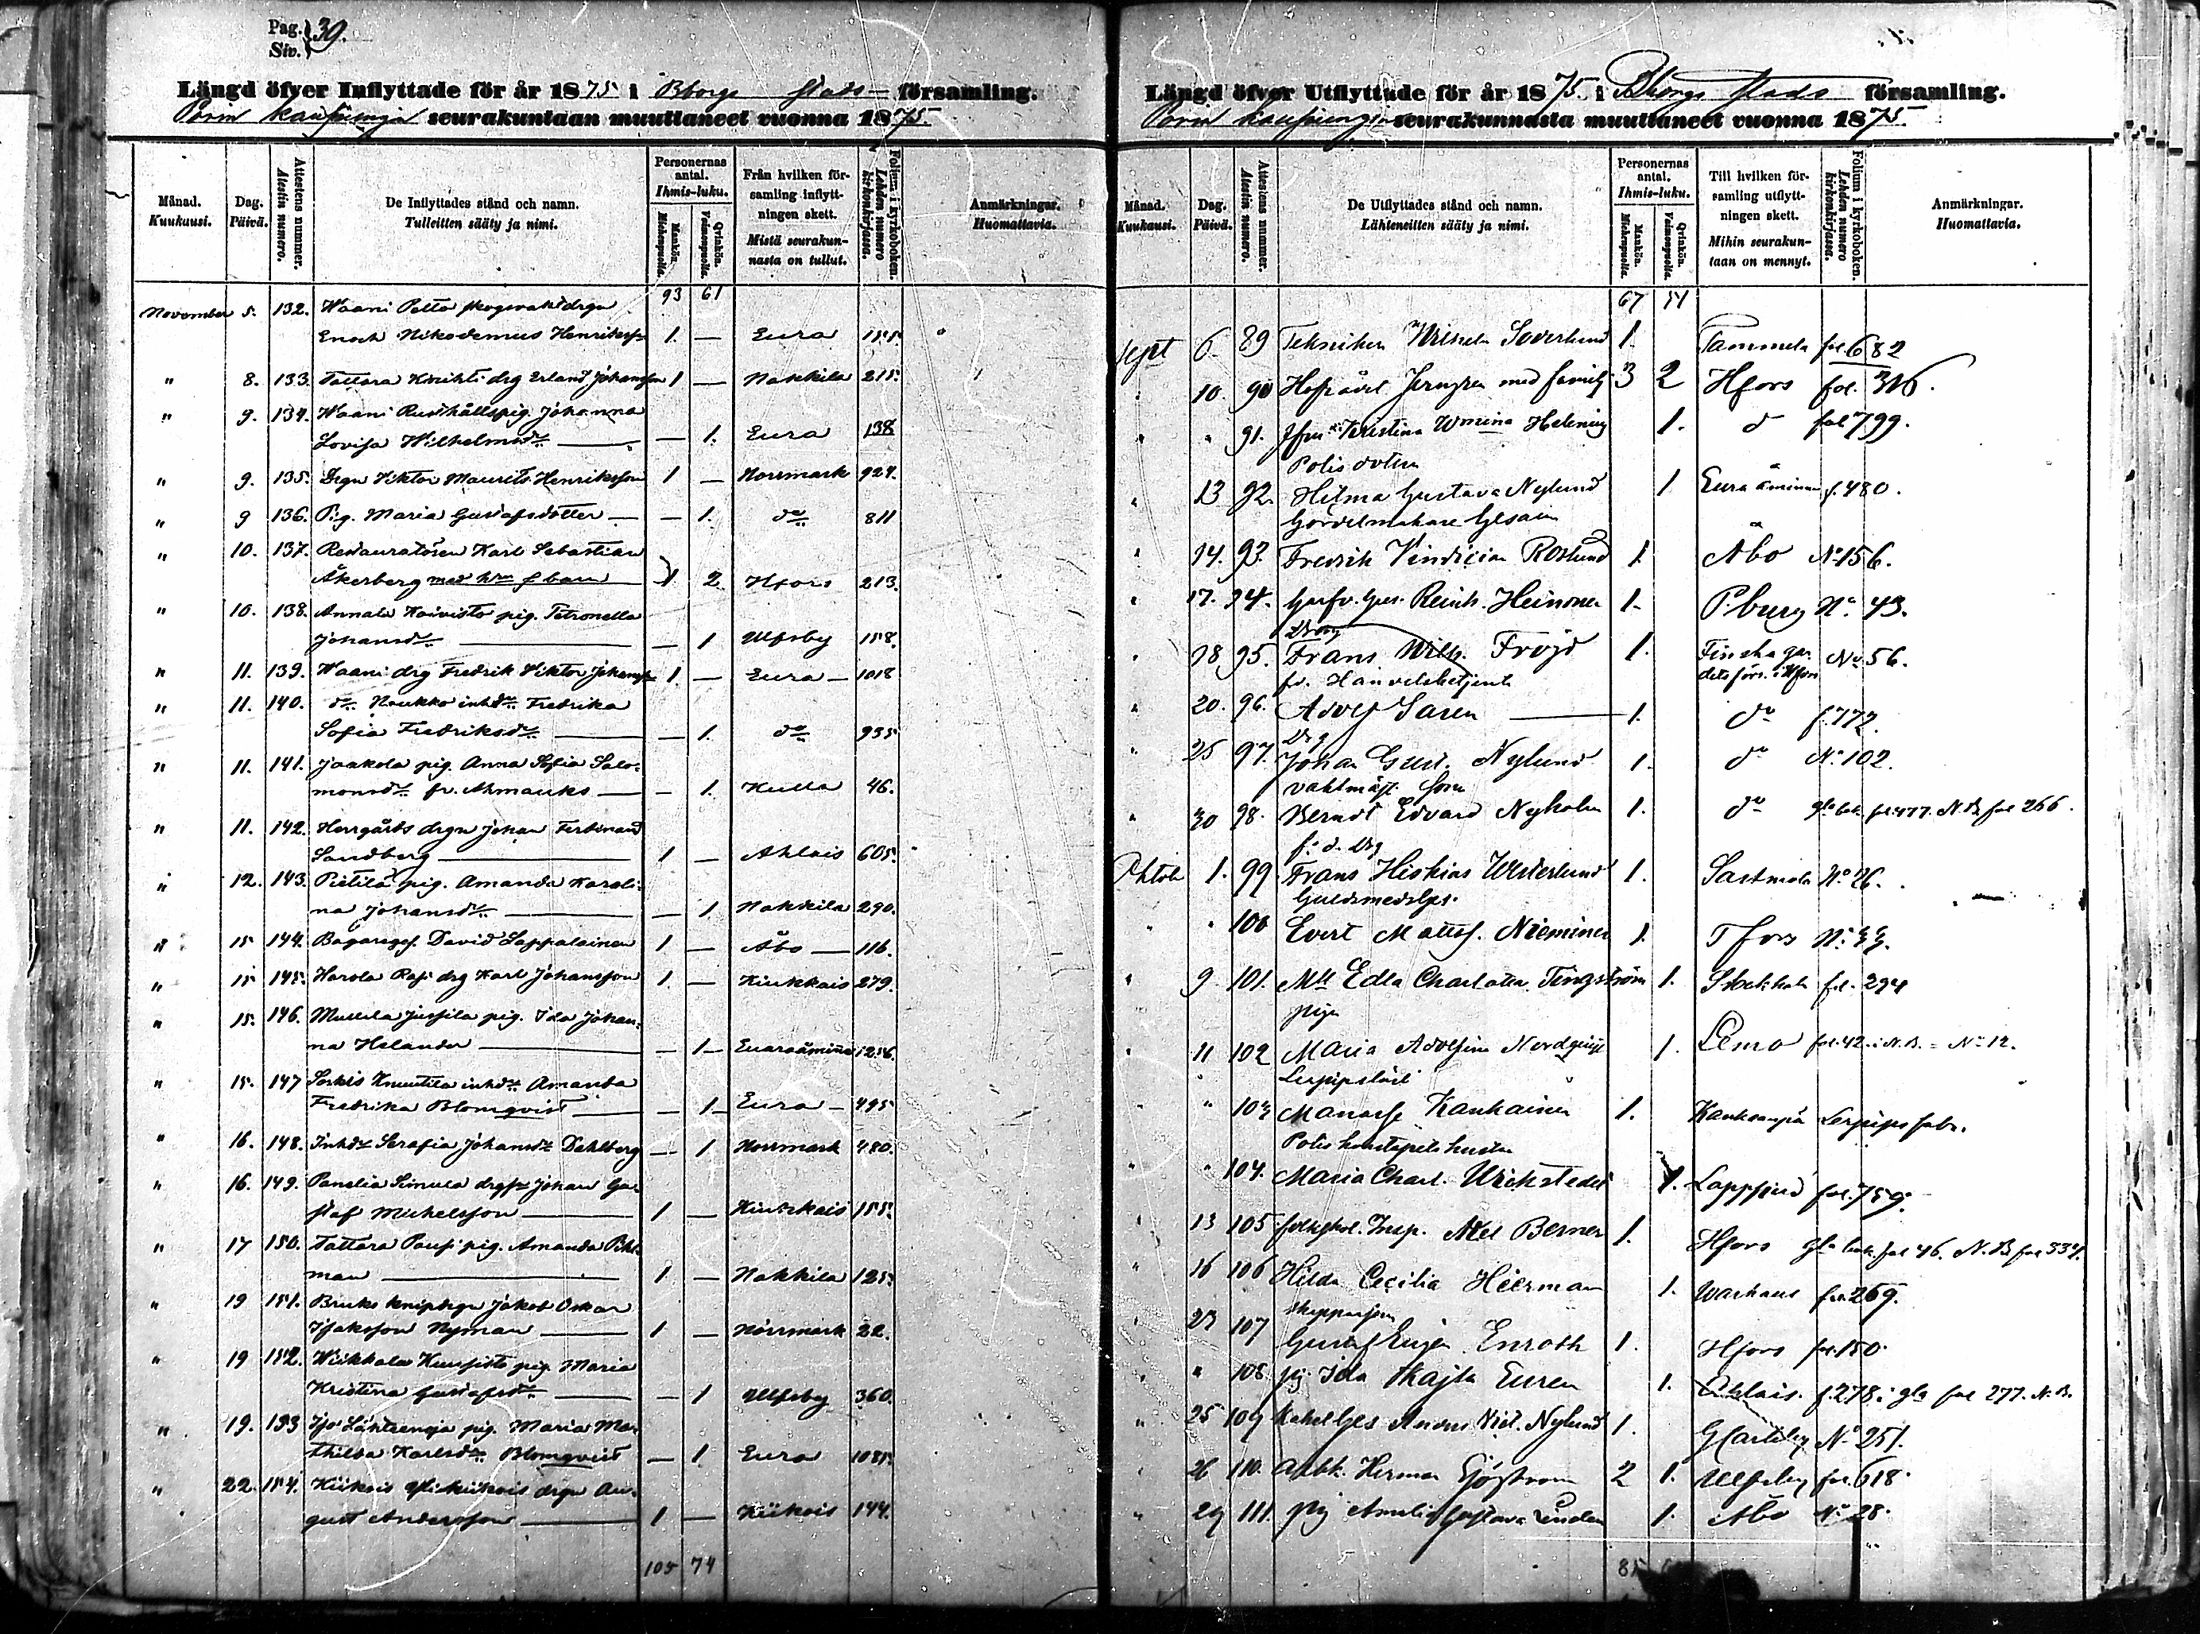 Pag. 39.
Siv.
Längd öfver Inflyttade för år 1875 i Bborgs stads församling.
Porin kaupungin seurakuntaan muuttaneet vuonna 1875.
Månad. Kuukausi.
Dag. Päivä.
Attestens nummer. Atestin numero.
De Inflyttades stånd och namn.
Tulleitten sääty ja nimi.
Personernas antal. Ihmis-luku.
Mankön. Miehenpuolta.
Qvinkön. Vaimonpuolta.
Från hvilken församling inflyttningen skett.
Mistä seurakunnasta on tullut.
Folium i kyrkoboken. Lehden numero kirkonkirjassa.
Anmärkningar. Huomattavia.
93 61
November 5. 132. Waani Petto skogvakt drgn
Enoch Nikodemus Henriksson 1. — Eura 155.
" 8. 133. Tattara Knihti drg Erland Johansson 1 — Nakkila 215.
" 9. 134. Waani Rusthållspig. Johanna
Lovisa Wilhelmsdr — 1. Eura 138
" 9. 135. Drgn Viktor Maurits Henriksson 1 — Norrmark 924.
" 9 136. Pig. Maria Gustafsdotter — 1. do 811
" 10. 137. Restauratören Karl Sebastian
Åkerberg med hru & barn 1 2 Hfors 213.
" 10. 138. Annala Koivisto pig. Petronella
Johansdr — 1 Ulfsby 158.
" 11. 139. Waani drg Fredrik Viktor Johansson 1. — Eura 1018
" 11. 140. do Noukko inhdr Fredrika
Sofia Fredriksdr — 1. do 935
" 11. 141. Jaakola pig. Anna Sofia Salo-
monsdr fr. Ahmauks — 1. Kulla 46.
" 11. 142. Herrgårds drgn Johan Ferdinand
Sandberg 1 — Ahlais 605.
" 12. 143. Pietilä pig. Amanda Karoli-
na Johansdr — 1 Nakkila 290.
" 15 144. Bagareges. David Lappalainen 1 — Åbo 116.
" 15 145. Harola Rasi drg Karl Johansson 1. — Kiukkais 279.
" 15. 146. Mullila Jussila pig. Ida Johan-
na Helander — 1 Euraåminne 1256.
" 15. 147 Sorkis Knuutila inhdr Amanda
Fredrika Blomqvist — 1 Eura 495
" 16. 148. Inhdr Serafia Johansdr Dahlberg — 1 Norrmark 480.
" 16. 149. Panelia Simula drgs Johan Gu-
staf Mickelsson 1 — Kiukkais 155.
" 17 150. Tattara Pausi pig. Amanda Pihl-
man 1 — Nakkila 125.
" 19 151. Bruks Jakob Oskar
Isaksson Nyman 1 — Norrmark 22.
" 19 152. Wiikkala Kuusisto pig. Maria
Kristina Gustafsdr — 1 Ulfsby 360.
" 19. 153 Iso Lähteenoja pig. Maria Ma-
thilda Karlsdr. Blomqvist — 1 Eura 1081.
" 22. 154. Kiikois Ylikiikois drgn Au-
gust Andersson 1 — Kiikois 144.
105 74
Längd öfver Utflyttade för år 1875. i Bborgs stads församling.
Porin kaupungin seurakunnasta muuttaneet vuonna 1875.
Månad. Kuukausi.
Dag. Päivä.
Attestens nummer. Atestin numero.
De Utflyttades stånd och namn.
Lähteneitten sääty ja nimi.
Personernas antal. Ihmis-luku.
Mankön. Miehenpuolta.
Qvinkön. Vaimonpuolta.
Till hvilken församling utflyttningen skett.
Mihin seurakuntaan on mennyt.
Folium i kyrkoboken. Lehden numero kirkonkirjassa.
Anmärkningar. Huomattavia.
67 51
Sept 6. 89 Tekniker Wilhelm Soverlund 1. Tammela fol. 682
" 10. 90 Hofrådet med familj 3 2 Hfors fol. 316.
" " 91. Jfrn Kristina Wmina Helenius 1. d fol 799.
Polis dottern
" 13 92. Hilma Gustava Nylund 1 Euraåminne f. 480.
Gördelmakare Gesällen
" 14. 93. Fredrik Vindician Roslund 1. Åbo No 156.
" 17. 94. Garfv. Ges. Reinh. Heinonen 1. P.burg No. 43.
Drgn
" 18 95. Frans Wilh. Fröjd 1. Finska gar-
dets förs. i Hfors No 56.
fd. Handelsbetjent
" 20. 96. Adolf Saren 1. do f. 772.
Drg
" 25 97. Johan Gust. Nylund 1. do No. 102.
vaktmäst. Son
" 30 98. Berndt Edvard Nyholm 1. do gla bok. fol. 477. N.B. fol 266.
f. d. Drg
Oktob 1. 99. Frans Hiskias Westerlund 1. Sastmola No 26.
Guldsmedsges.
" 100 Evert Mattss. Nieminen 1. Tfors No 33.
" 9 101. Mll Edla Charlotta Tingström 1. Stockholm fol. 294
pign
" 11 102 Maria Adolfina Nordqvist 1. Lemo fol. 42. i N.B. = No 12.
" " 103 Manasse Kankainen 1. Kankaanpää Lerpips fabr.
Polis konstapels hustru
" " 104. Maria Charl. Wichstedt 1. Lappfjerd fol. 759.
" 13 105 folkskol. Insp. Axel Berner 1. Hfors gla bok. fol 46. N.B fol 334.
" 16 106 Hilda Cecilia Heerman 1. Warkaus fol. 269.
" 23 107 Gustaf Eugen Enroth 1. Hfors fol. 150.
" " 108 pig Ida Kajsa Euren 1. Ahlais. f. 278. i gla fol 277. N.B.
" 25 109 Kakel Ges Anders Vict. Nylund 1. Gkarleby No 251.
" 26 110. Herman Sjöström 2 1. Ulfsby fol. 618.
" 29 111. pig Amalia Gustava Linden 1. Åbo No 28.
85